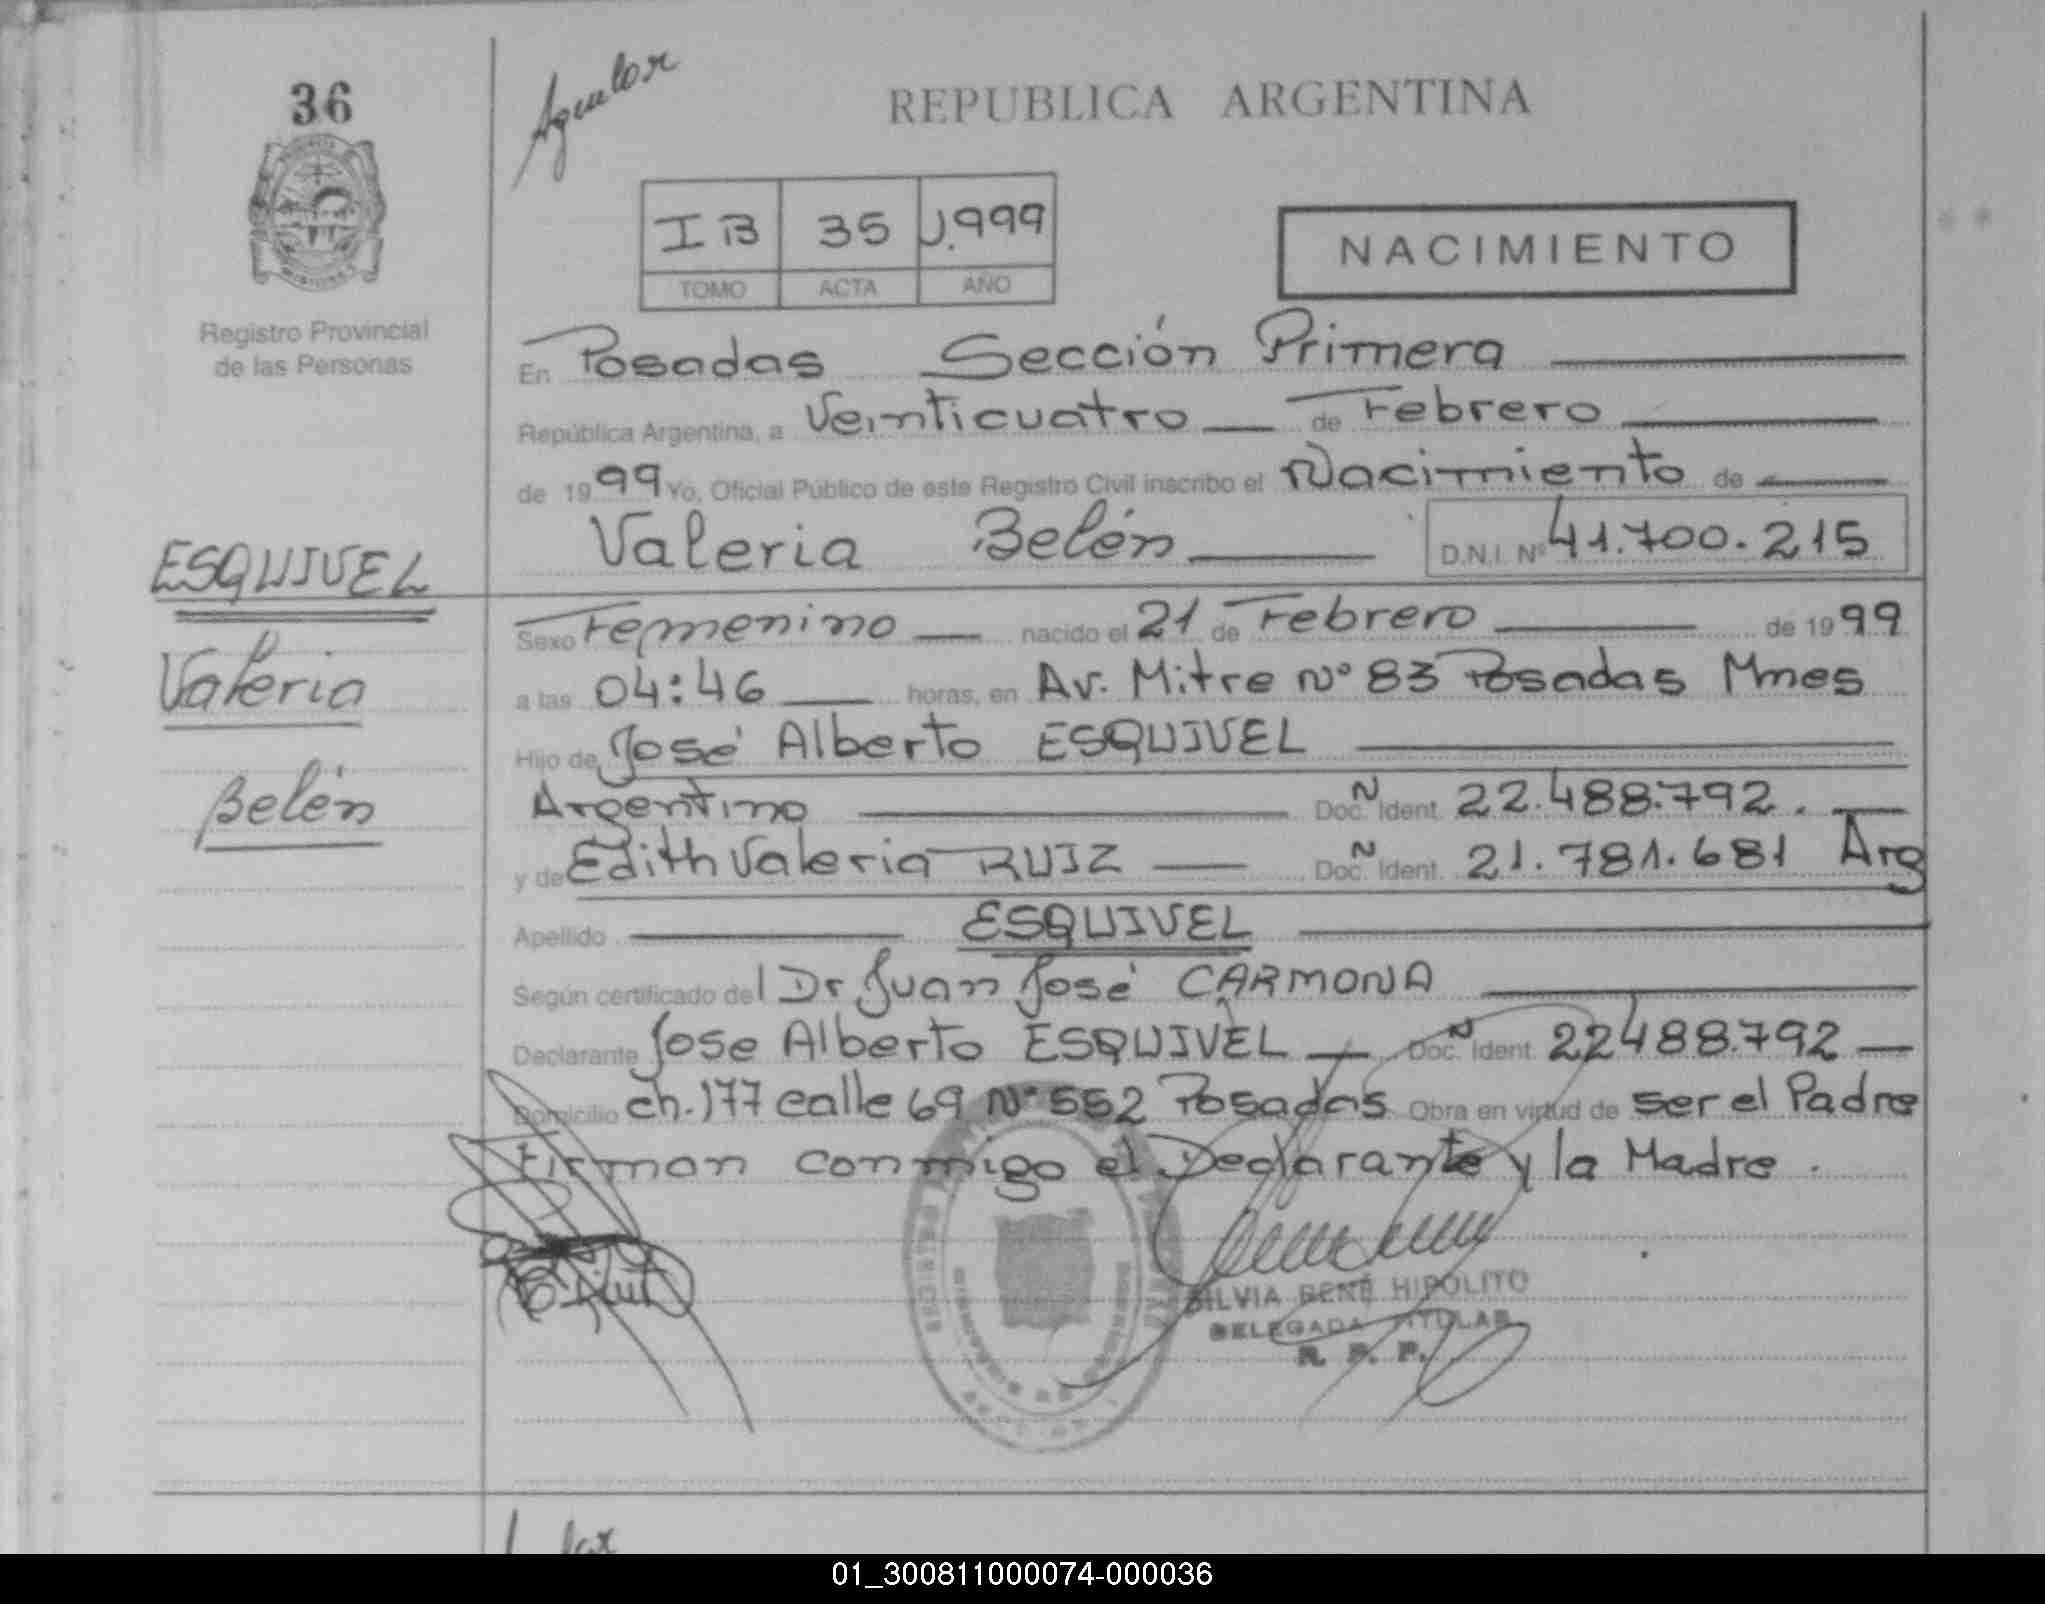 36
Aguilar
REPUBLICA ARGENTINA
I B 35 1.999
TOMO ACTA AÑO
NACIMIENTO
Registro Provincial
de las Personas
En Posadas Sección Primera
República Argentina, a Veinticuatro de Febrero
de 1999 Yo, Oficial Público de este Registro Civil inscribo el Nacimiento de
Valeria Belén D.N.I. Nº 41.700.215
ESQUIVEL
Valeria
Belén
Sexo Femenino nacido el 21 de Febrero de 1999
a las 04:46 horas, en Av. Mitre Nº 83 Posadas Mnes
Hijo de José Alberto ESQUIVEL
Argentino Doc. N Ident. 22.488.792.
y de Edith Valeria RUIZ Doc. N Ident. 21.781.681 Arg
Apellido ESQUIVEL
Según certificado del Dr Juan José CARMONA
Declarante Jose Alberto ESQUIVEL Doc. N Ident. 22488.792
Domicilio ch. 177 calle 69 Nº 552 Posadas Obra en virtud de ser el Padre
Firman conmigo el Declarante y la Madre.
SILVIA RENÉ HIPOLITO
DELEGADA TITULAR
R. P. P.
01_300811000074-000036